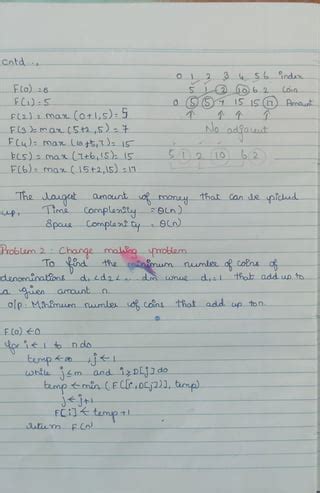 Cntd...
0 1 2 3 4 5 6 index
F(0) = 0
5 1 2 10 6 2 Coin
F(1) = 5
0 5 5 7 15 15 17 Amount
F(2) = max (0+1, 5) = 5
F(3) = max (5+2, 5) = 7
F(4) = max (10+5, 7) = 15
No adjacent
F(5) = max (7+6, 15) = 15
5 1 2 10 6 2
F(6) = max (15+2, 15) = 17
The largest amount of money that can be picked
up.
Time complexity = Θ(n)
Space complexity = Θ(n)
Problem 2: Change making problem
To find the minimum number of coins of
denominations d1 < d2 < .. dm where d1 = 1 that add up to
a given amount n
o/p: Minimum number of coins that add up to n
F(0) ← 0
for i ← 1 to n do
temp ← ∞ , j ← 1
while j ≤ m and i ≥ D[j] do
temp ← min (F([i-D[j]), temp)
j ← j+1
F[i] ← temp + 1
return F(n)